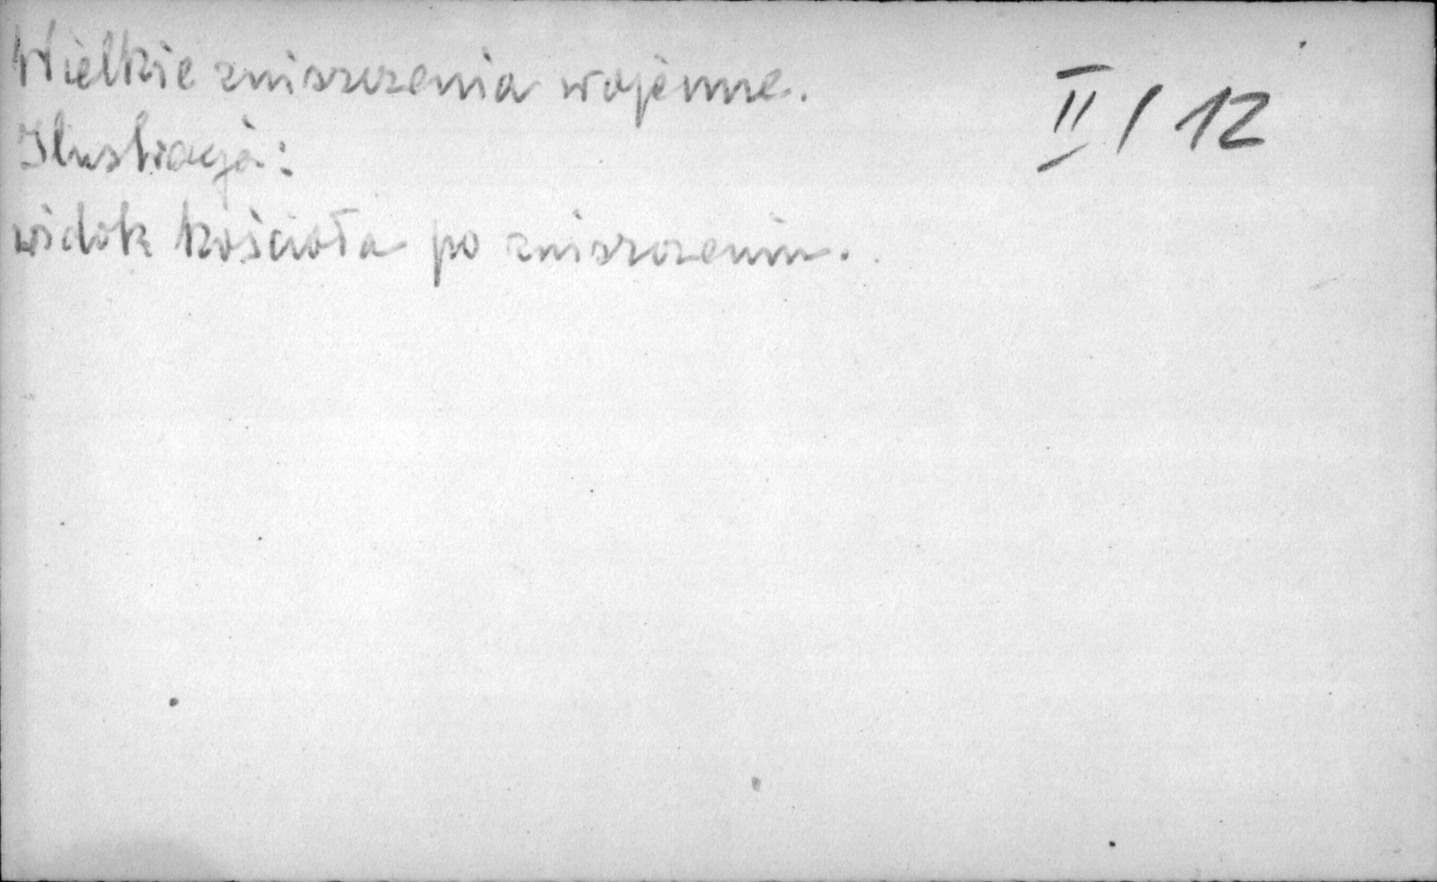 Wielkie zniszczenia wojenne.
II / 12
Ilustracja:
widok kościoła po zniszczeniu.